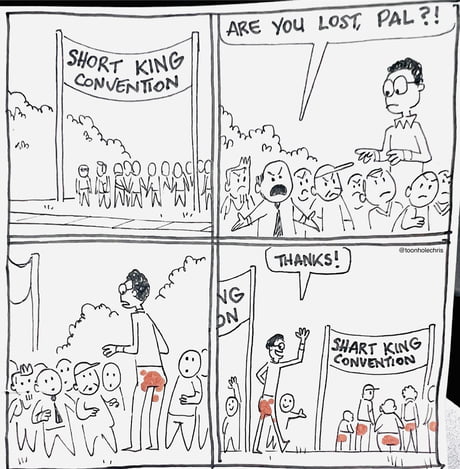 SHORT KING
CONVENTION
ARE YOU LOST, PAL?!
@toonholechris
THANKS!
NG
ON
SHART KING
CONVENTION